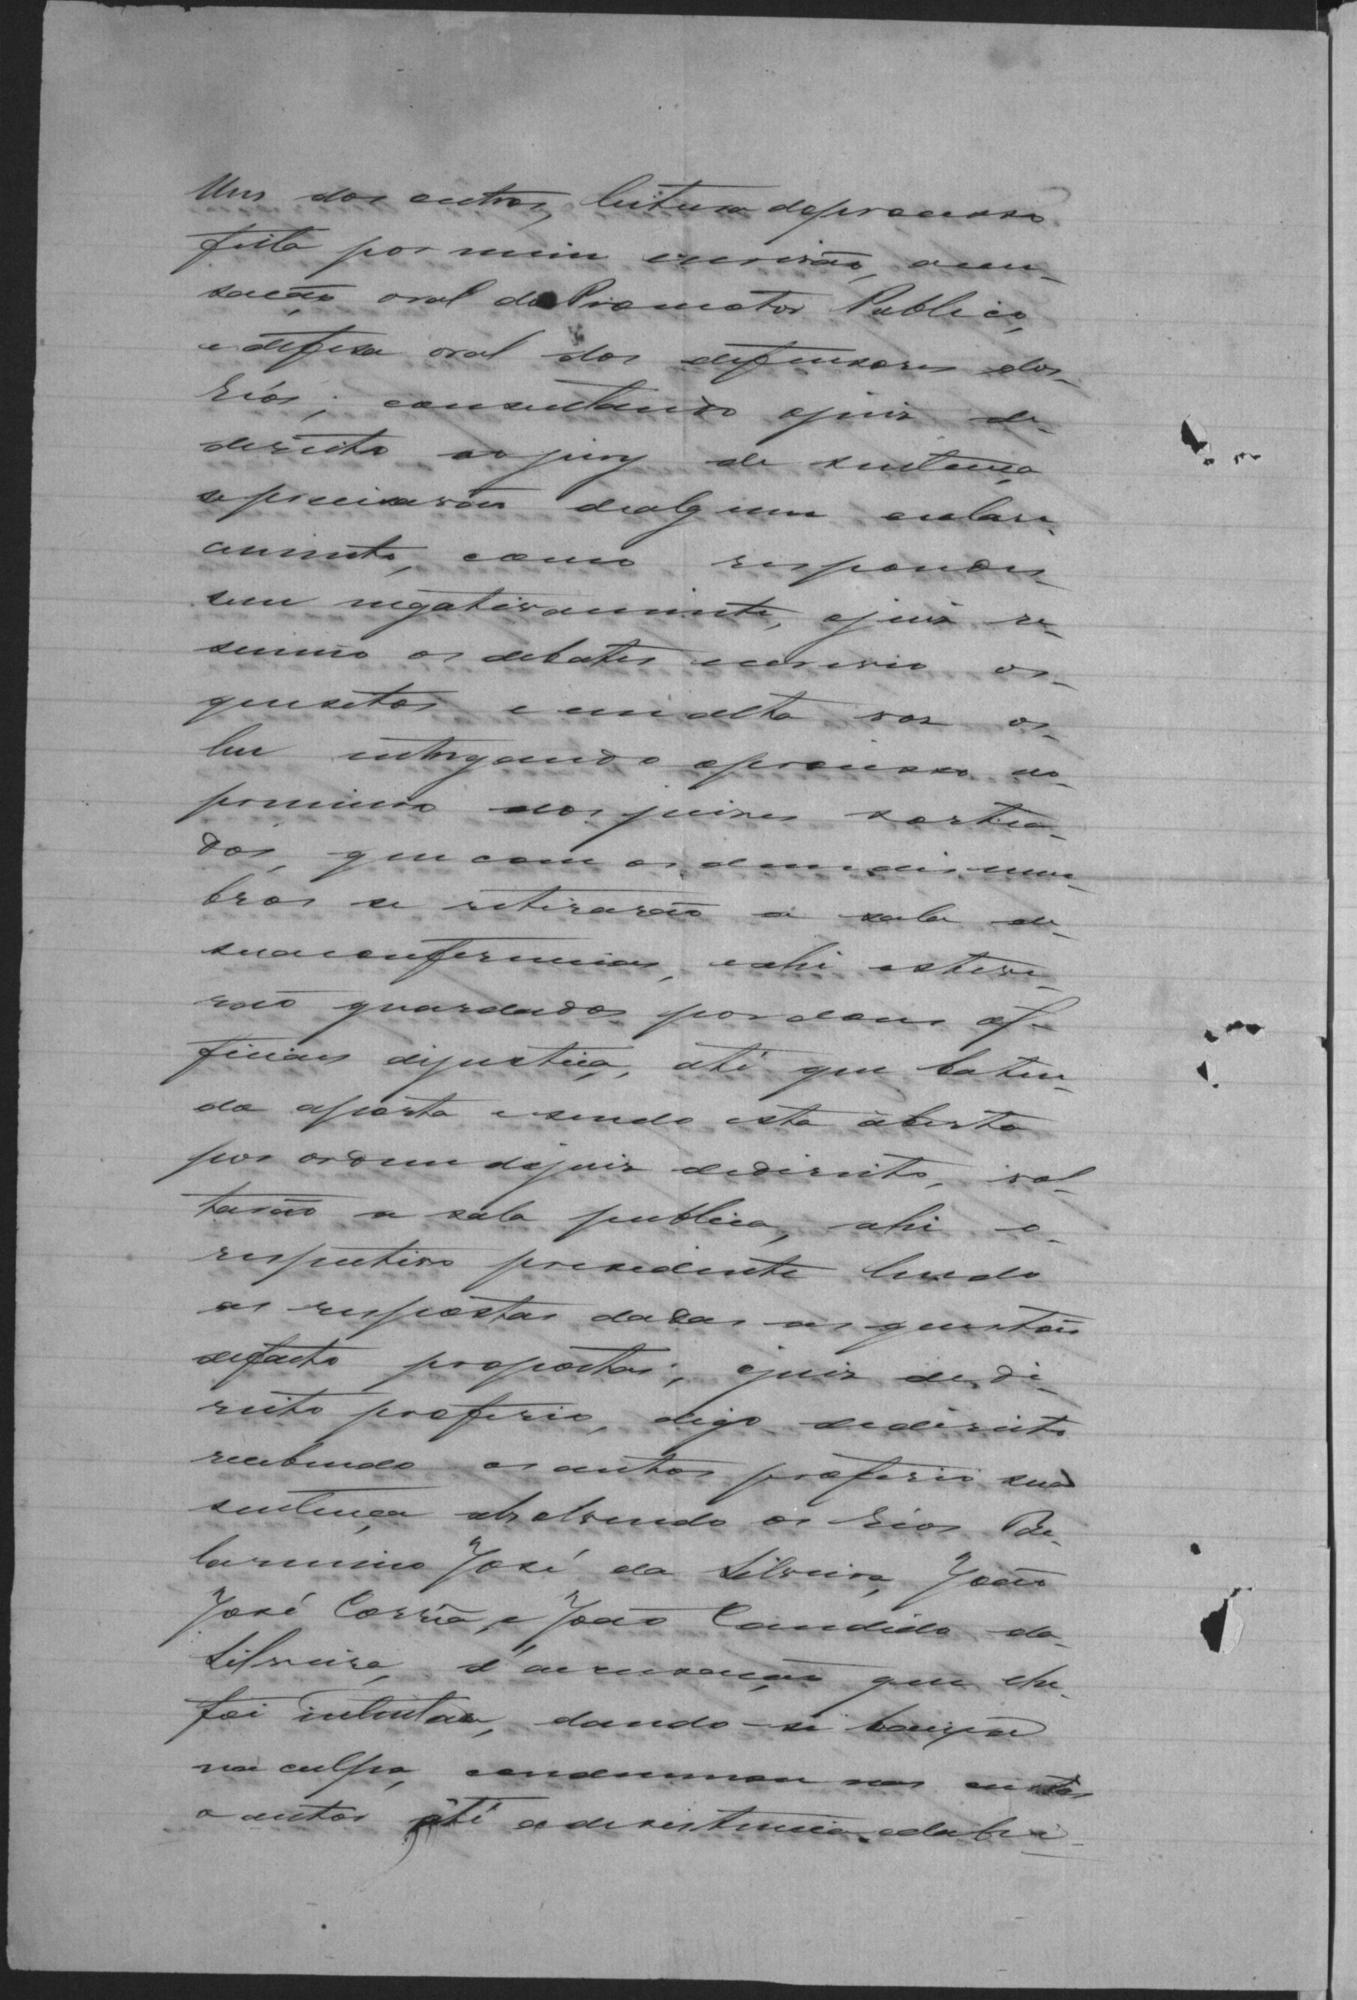 Uns dos outros, leitura do processo
feita por mim escrivão, accu-
sação oral do Promotor Publico,
e defesa oral dos defensores dos
réos; consultando o juiz de
direito ao jury de sentença
se precisavão de algum esclare-
cimento, como respondes-
sem negativamente, o juiz re-
sumio os debates escreveo os
quesitos e em alta voz os
leu entregando o processo ao
primeiro dos juizes sortea-
dos, que com os demais mem-
bros se retirarão a sala de
sua conferencia, e ahi estive-
rão guardados por dous of-
ficiaes de justiça, até que baten-
do a porta e sendo esta aberta
por ordem do juiz de direito, vol-
tarão a sala publica, ahi o
respectivo presidente lendo
as respostas dadas as questões
de facto propostas; o juiz de di-
reito proferio, digo de direito
recebendo os autos proferio sua
sentença absolvendo os réos Be-
larmino José da Silveira, João
José Corrêa, e João Candido da
Silveira, d'accusação que lhe
foi intentada, dando-se baixa
na culpa, condemnou nas custas
o autor até a desistencia